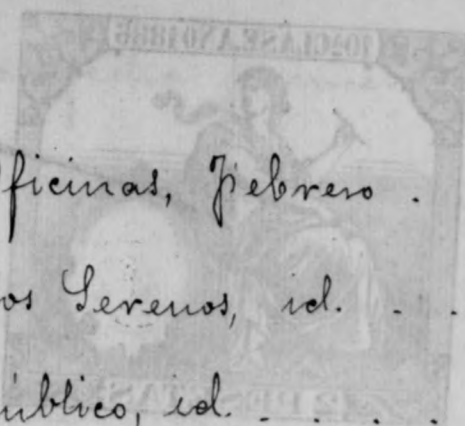 ficinas, Febrero .
os Serenos, id. . .
úblico, id. . . . .